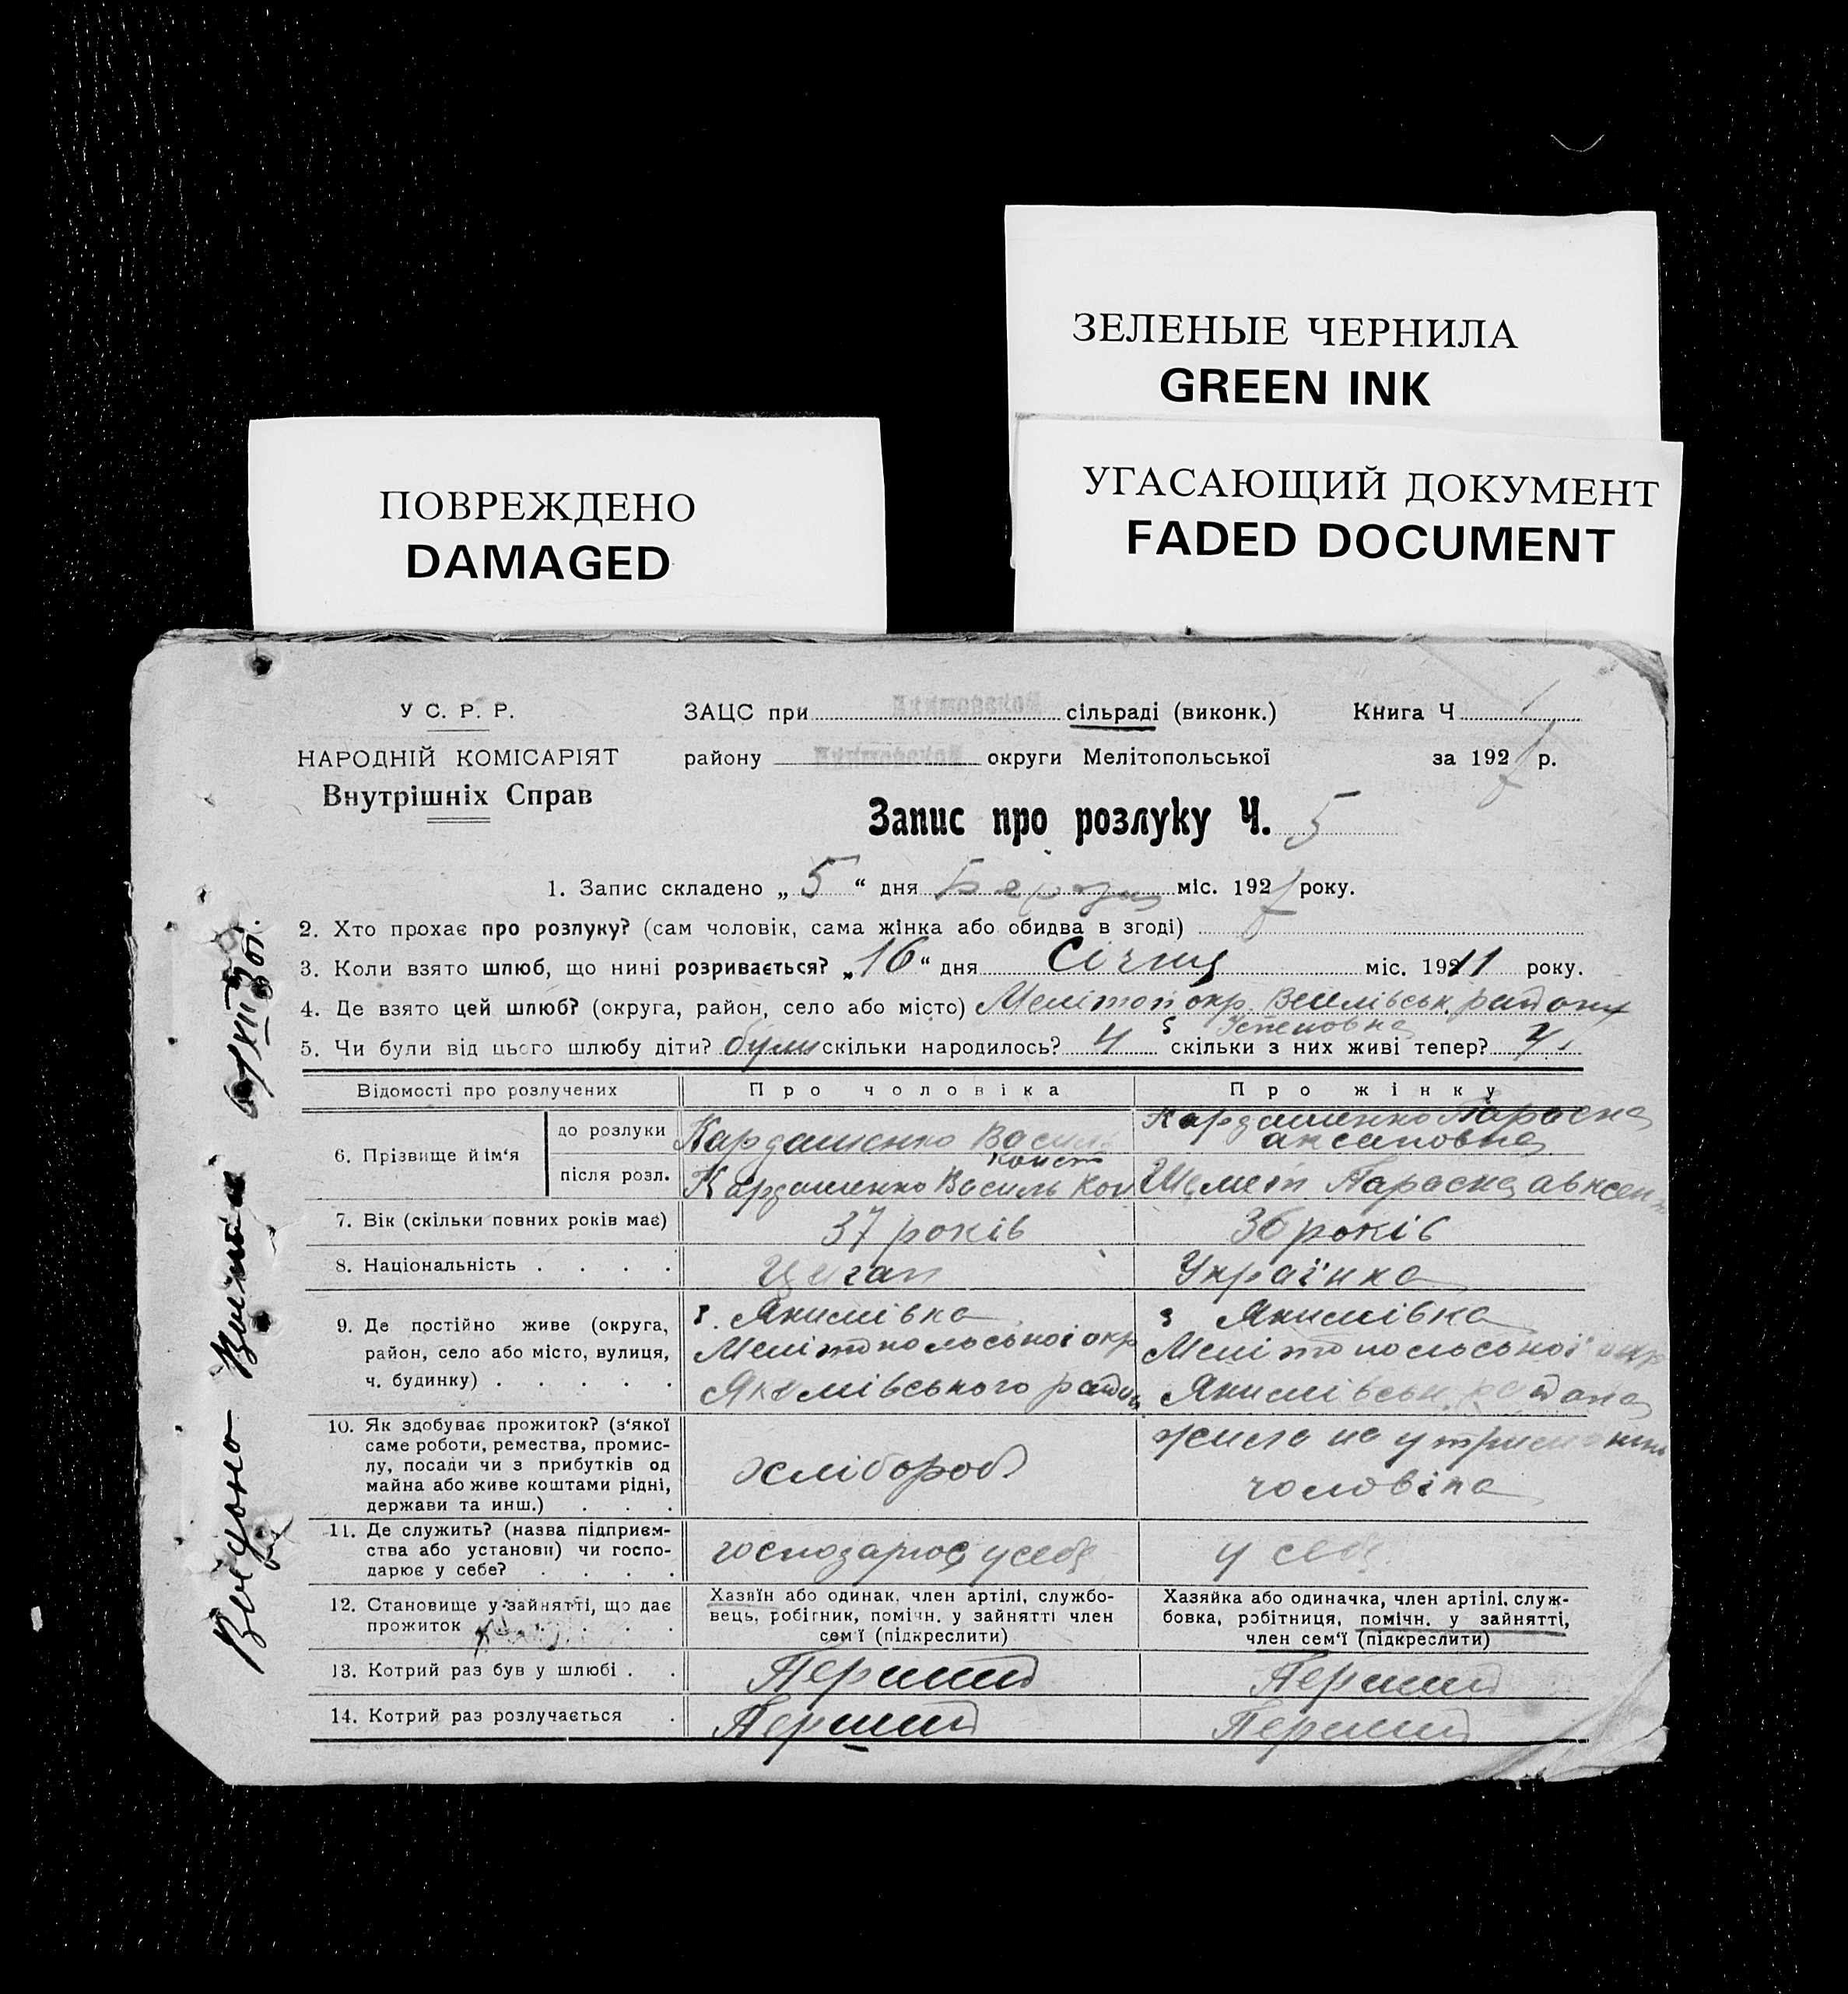 ЗЕЛЕНЫЕ ЧЕРНИЛА
GREEN INK
УГАСАЮЩИЙ ДОКУМЕНТ
FADED DOCUMENT
ПОВРЕЖДЕНО
DAMAGED
У С. Р. Р.
НАРОДНІЙ КОМІСАРІЯТ
Внутрішніх Справ
ЗАЦС при сільраді (виконк.) Книга Ч 1
району округи Мелітопольської за 1927 р.
Запис про розлуку Ч. 5
1. Запис складено „5“ дня Березня міс. 1927 року.
2. Хто прохає про розлуку? (сам чоловік, сама жінка або обидва в згоді)
3. Коли взято шлюб, що нині розривається? „16“ дня Січня міс. 1911 року.
4. Де взято цей шлюб? (округа, район, село або місто) Мелітоп окр. району
5. Чи були від цього шлюбу діти? були скільки народилось? 4 скільки з них живі тепер? 4.
Відомості про розлучених Про чоловіка Про жінку
6. Прізвище й ім'я
до розлуки Кардашенко Василь Конст Кардашенко Параска
після розл. Кардашенко Василь Кон Шемет Параска авксен
7. Вік (скільки повних років має) 37 років 36 років
8. Національність . . . . Циган Українка
9. Де постійно живе (округа, район, село або місто, вулиця, ч. будинку) . . . . .
с. Якимівка
Мелітопольської окр
Якимівського район
с Якимівка
Мелітопольської окр
Якимівськ. района
10. Як здобуває прожиток? (з'якої
саме роботи, ремества, промис-
лу, посади чи з прибутків од
майна або живе коштами рідні,
держави та инш.) . . .
хлібороб
жила на утриманні
чоловіка
11. Де служить? (назва підприєм-
ства або установи) чи госпо-
дарює у себе? . . . .
господарює у себе у себе
12. Становище у зайнятті, що дає
прожиток . . . .
Хазяїн або одинак, член артілі, службо-
вець, робітник, помічн. у зайнятті член
сем'ї (підкреслити)
Хазяйка або одиначка, член артілі, служ-
бовка, робітниця, помічн. у зайнятті,
член сем'ї (підкреслити)
13. Котрий раз був у шлюбі . . Перший Перший
14. Котрий раз розлучається . Перший Перший
Видано